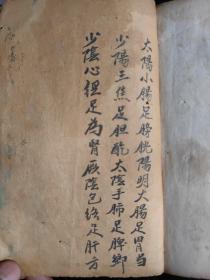 太陽小腸足膀胱陽明大腸足胃当
少陽三焦足胆配太陰手肺足脾鄉
少陰心經足為腎厥陰包絡足肝方